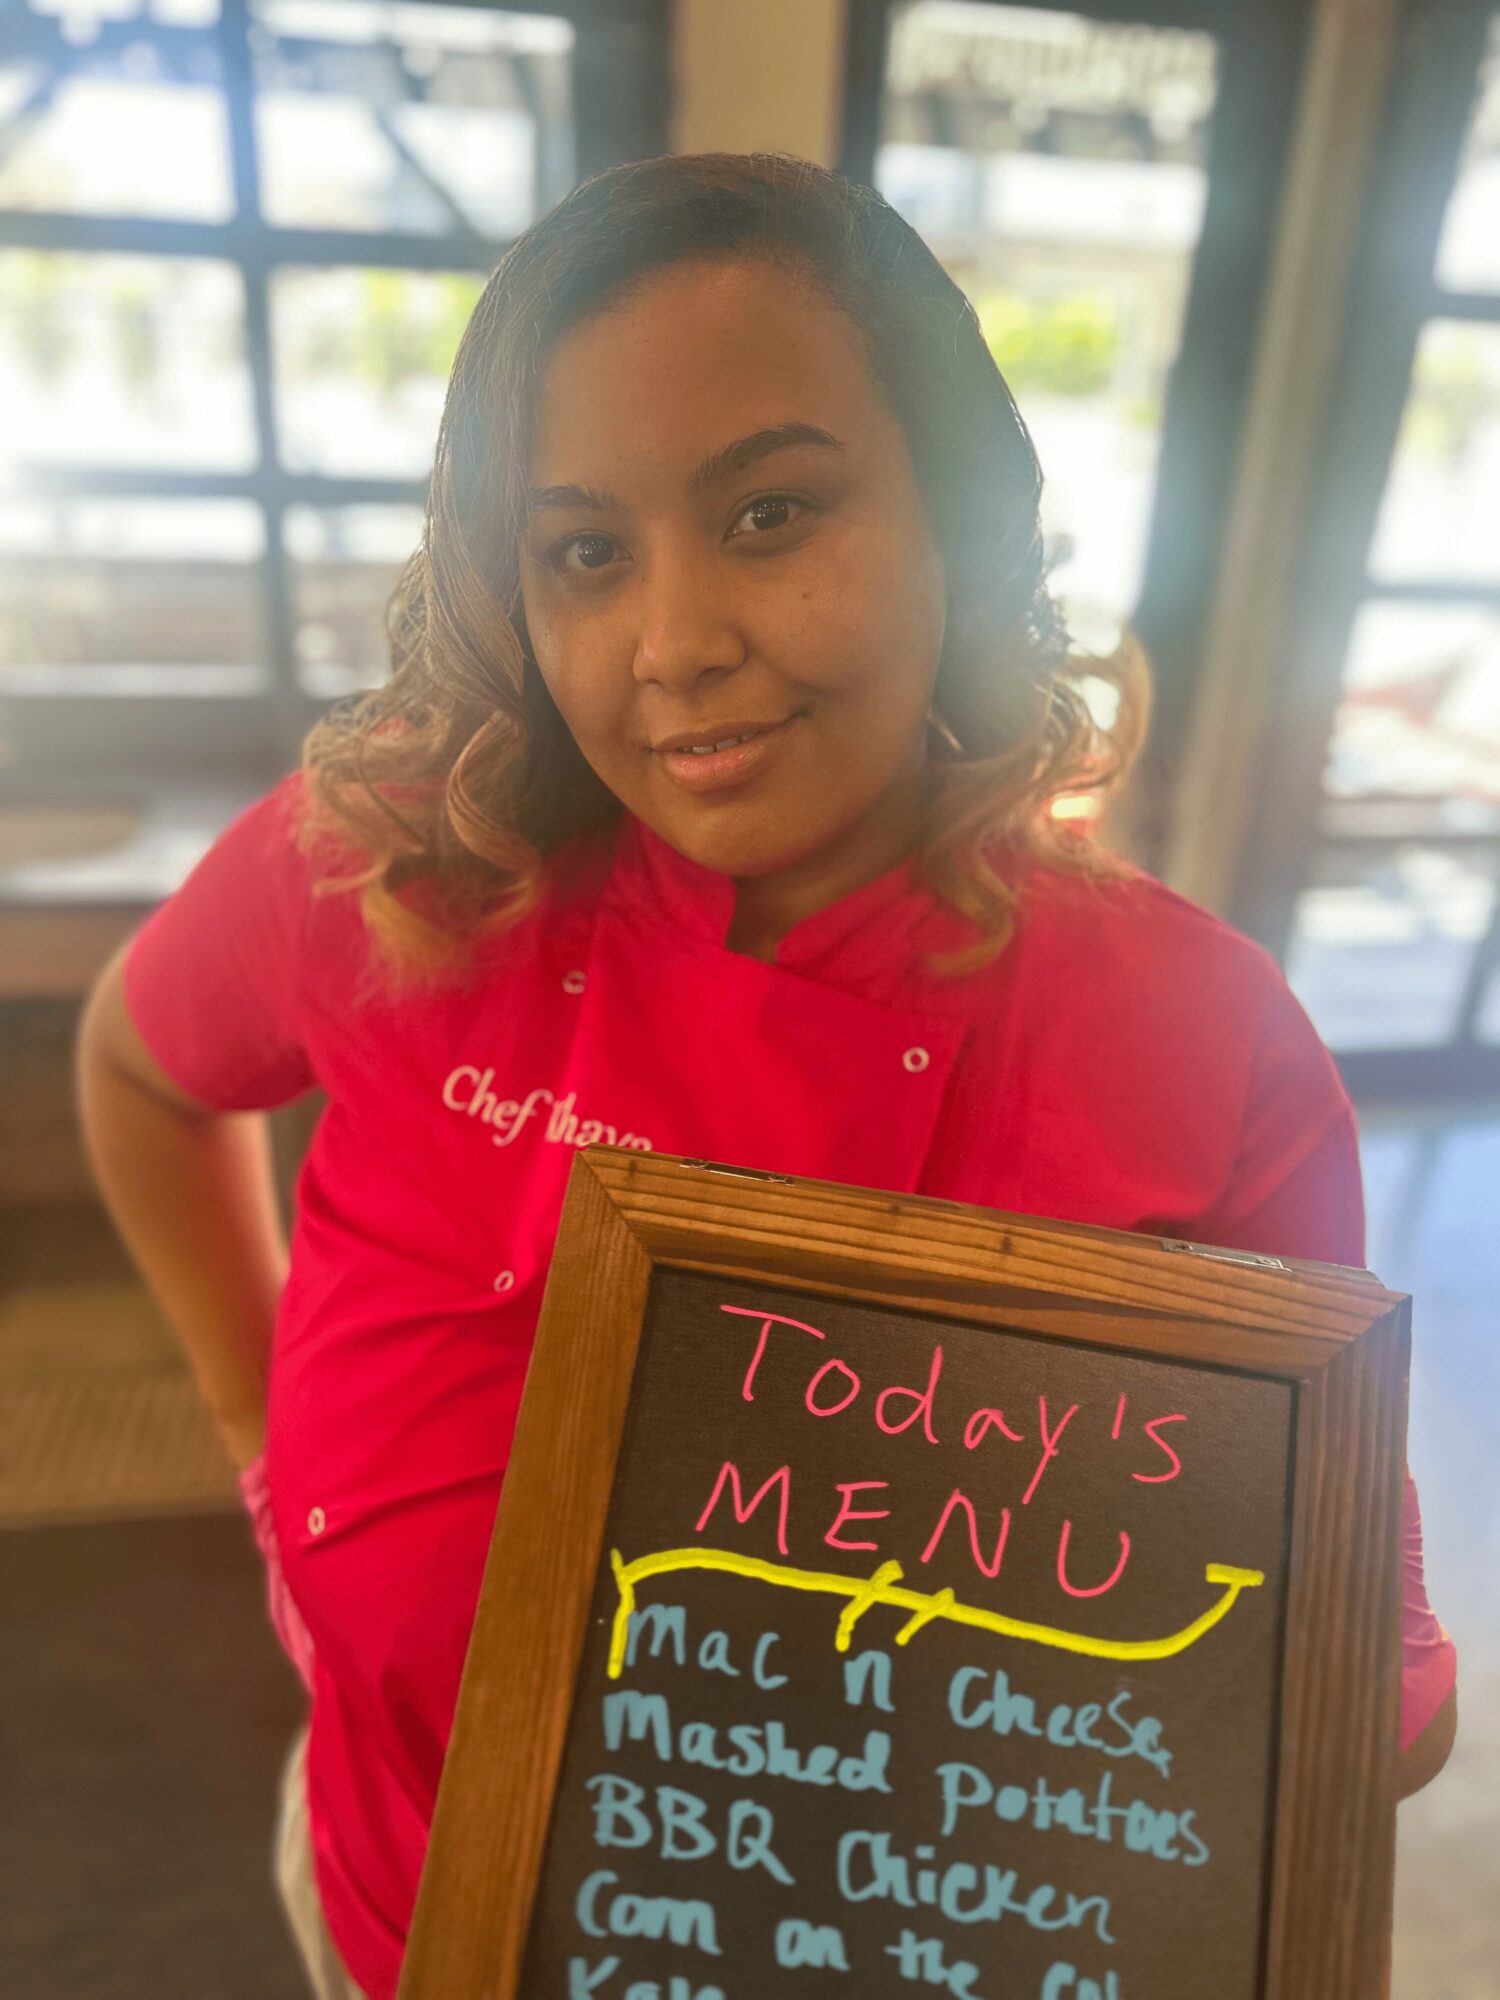 Chef
Today's
MENU
Mac n Cheese
Mashed Potatoes
BBQ Chicken
Corn on the